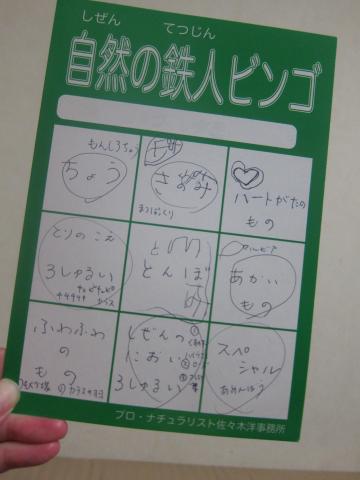 しぜん てつじん
自然の鉄人ビンゴ
もんしろちょう
ちょう
さなみ
まつぼっくり
ハートがたの
もの
とりのこえ
3しゅるい
とんぼ
あかい
もの
ふわふわ
の
もの
しぜんの
におい
3しゅるい
スペ
シャル
あめんぼう
プロ・ナチュラリスト佐々木洋事務所